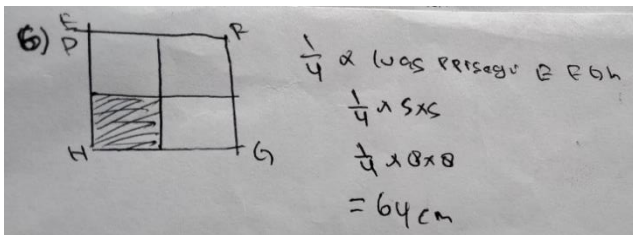 6)
E
D
F
H
G
1/4 x luas persegi E F G h
1/4 x s x s
1/4 x 8 x 8
= 64 cm